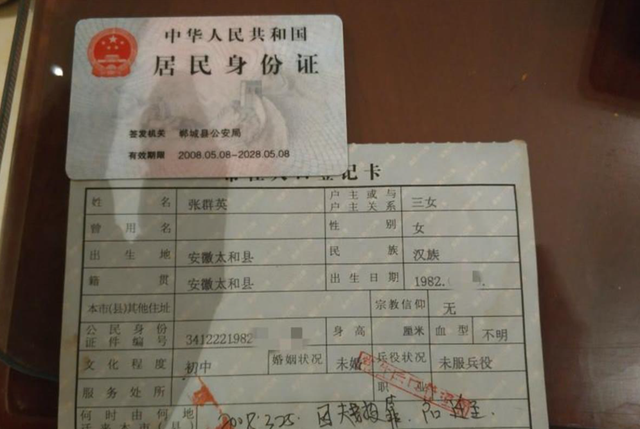 中华人民共和国
居民身份证
签发机关 郸城县公安局
有效期限 2008.05.08-2028.05.08
登记卡
姓名 张群英 户主或与户主关系 三女
曾用名 性别 女
出生地 安徽太和县 民族 汉族
籍贯 安徽太和县 出生日期 1982.
本市(县)其他住址 宗教信仰 无
公民身份证件编号 3412221982 身高 厘米 血型 不明
文化程度 初中 婚姻状况 未婚 兵役状况 未服兵役
服务处所 职
何时由何地